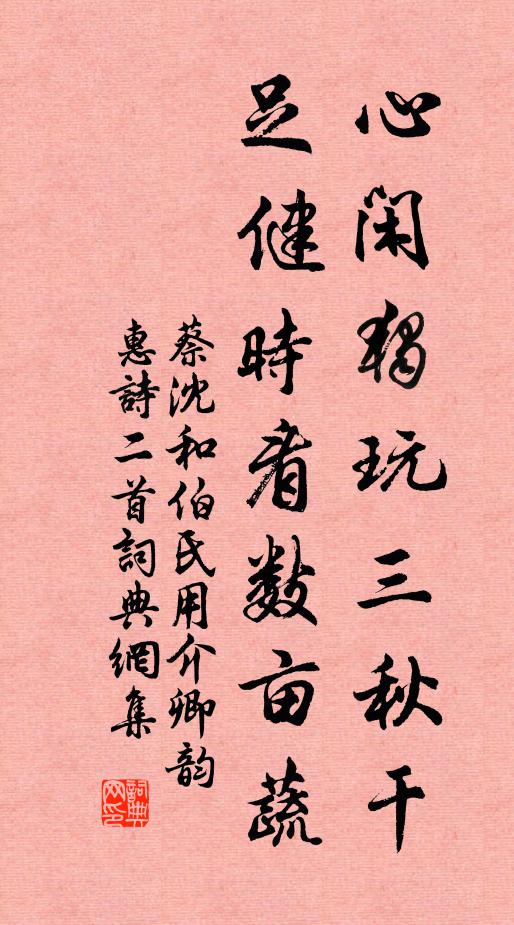 心闲独玩三秋干
足健時看数亩蔬
蔡沈和伯氏用介卿韵
惠詩二首詞典網集
詞典网印